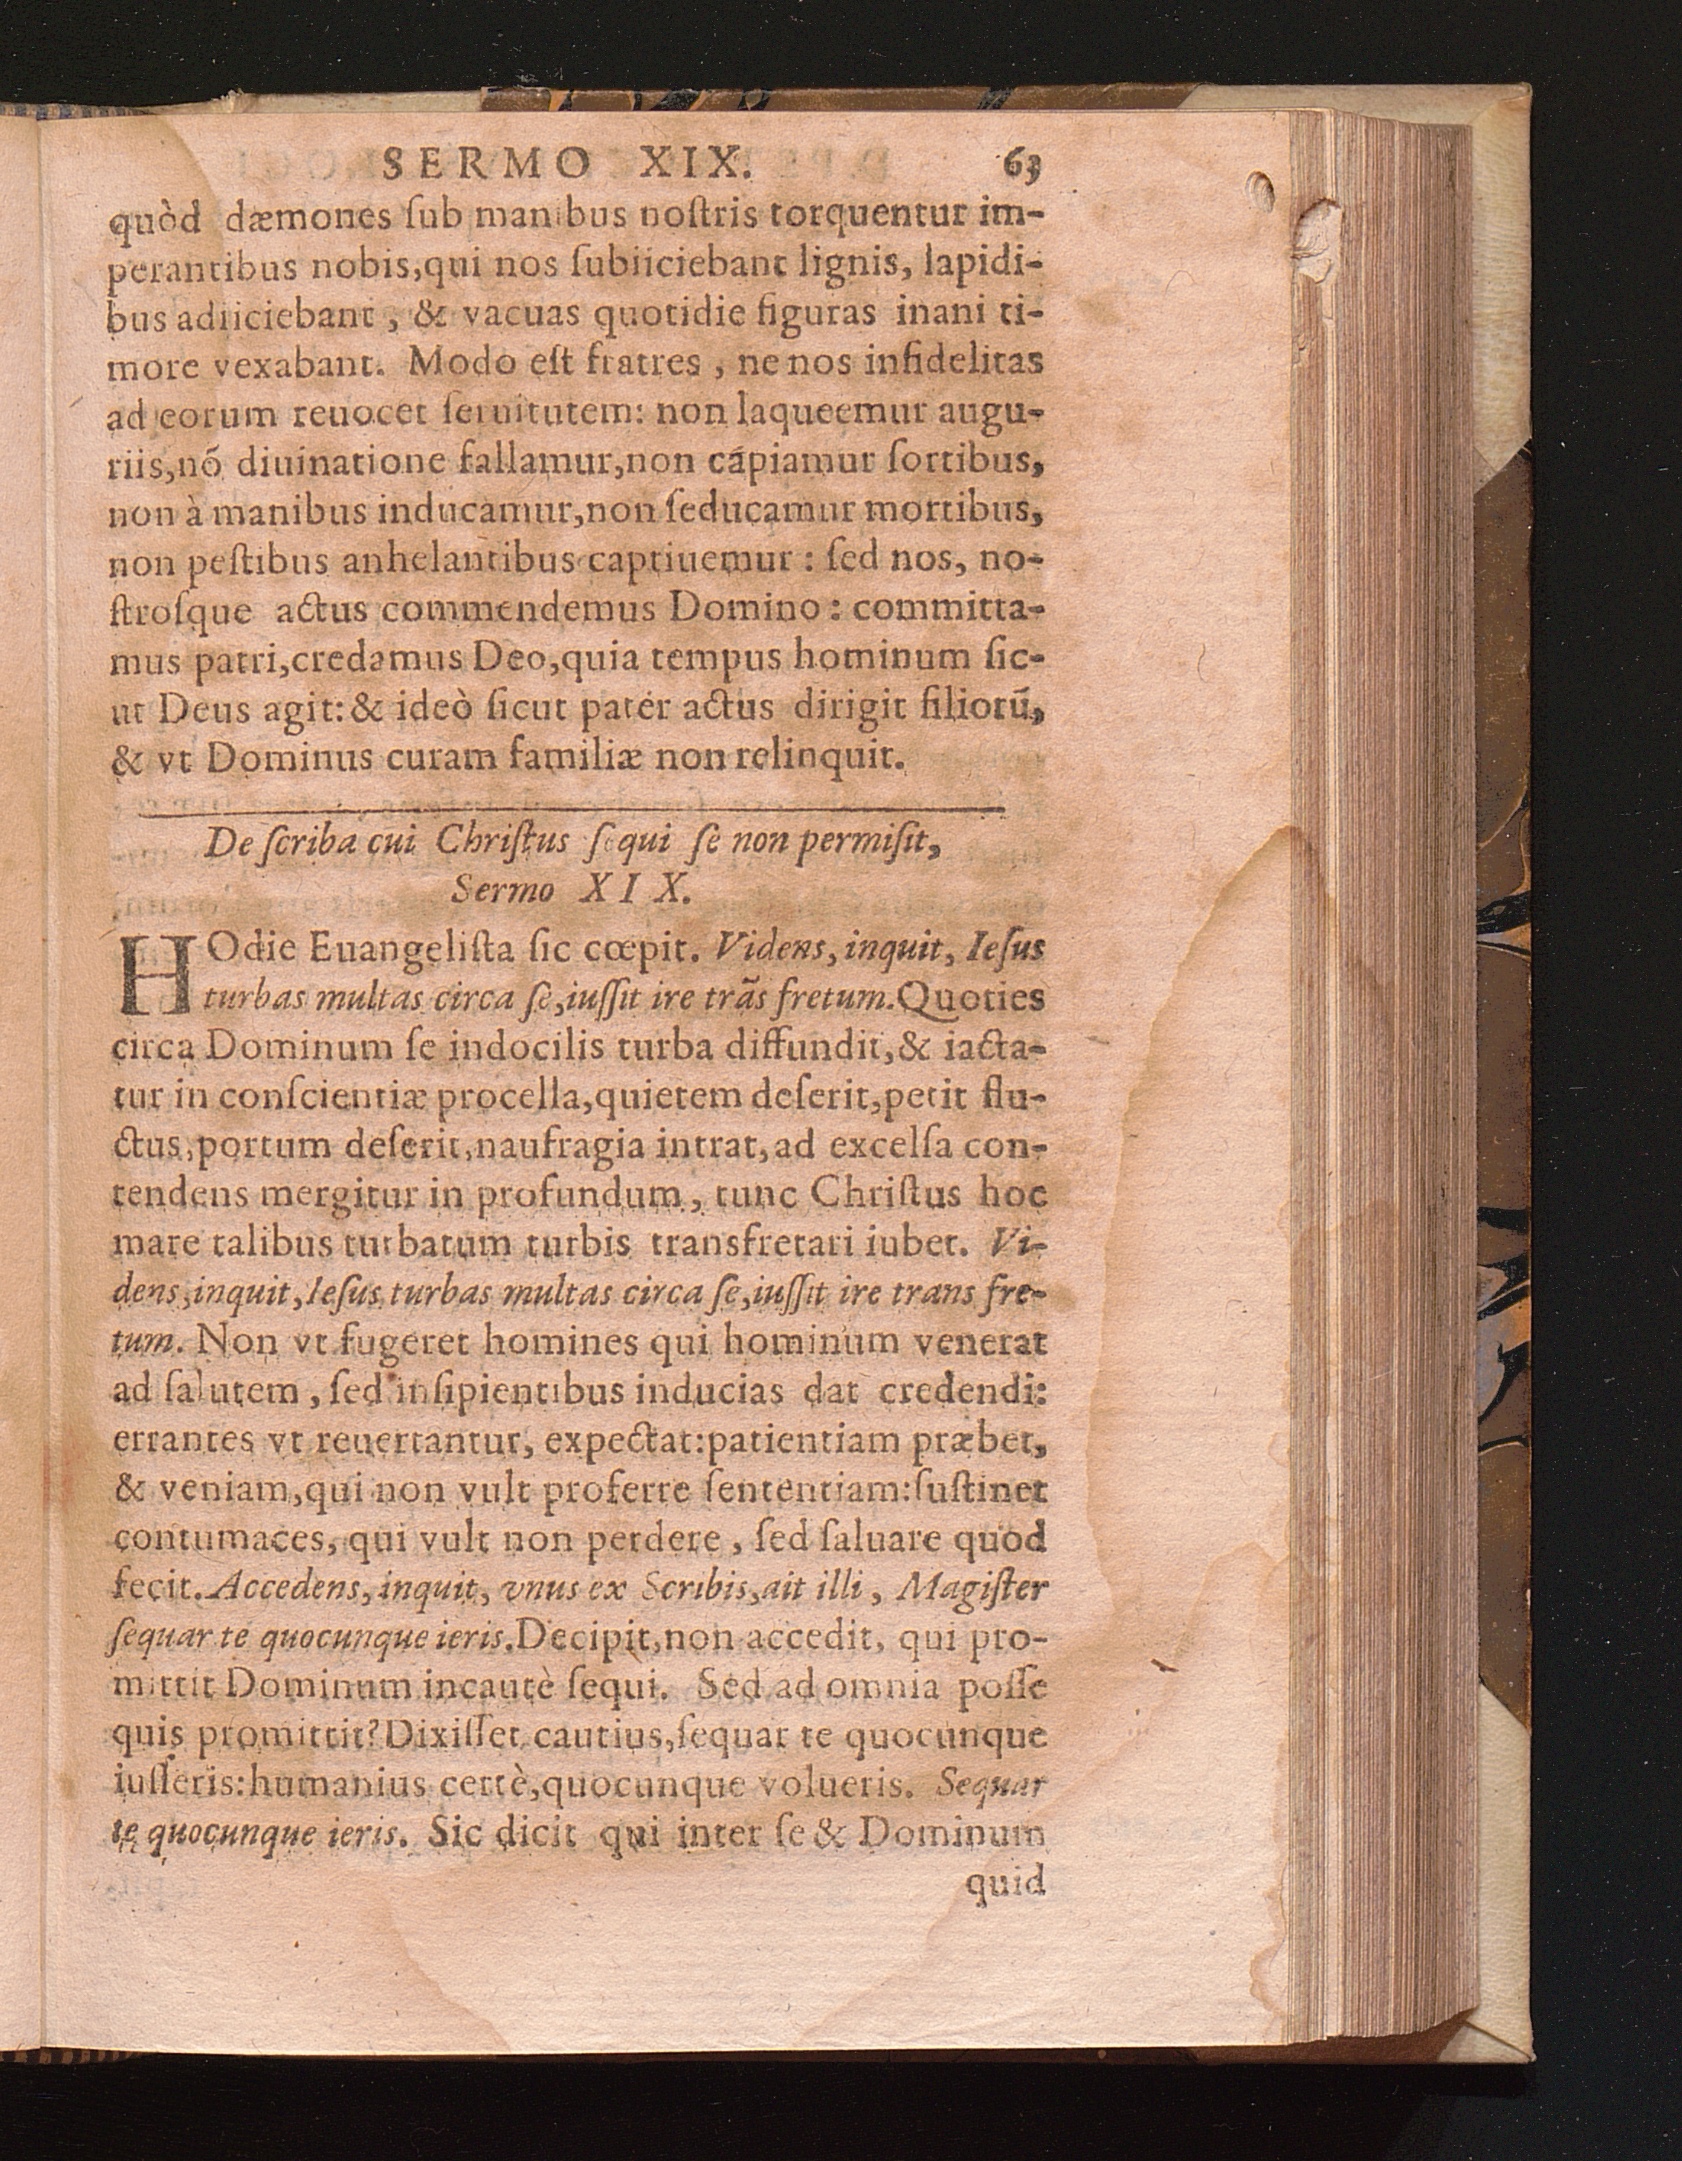 SERMO XIX. 63
quòd dæmones ſub manibus noſtris torquentur im-
perantibus nobis,qui nos ſubiiciebant lignis, lapidi-
bus adiiciebant , & vacuas quotidie figuras inani ti-
more vexabant. Modo eſt fratres , ne nos infidelitas
ad eorum reuocet ſeruitutem: non laqueemur augu-
riis,nõ diuinatione fallamur,non cápiamur ſortibus,
non à manibus inducamur,non ſeducamur mortibus,
non peſtibus anhelantibus captiuemur : ſed nos, no-
ſtroſque actus commendemus Domino : committa-
mus patri,credamus Deo,quia tempus hominum ſic-
ut Deus agit:& ideò ſicut pater actus dirigit filiorũ,
& vt Dominus curam familiæ non relinquit.
De ſcriba cui Chriſtus ſequi ſe non permiſit,
Sermo XIX.
HOdie Euangeliſta ſic cœpit. Videns, inquit, Ieſus
turbas multas circa ſe,iuſſit ire trãs fretum.Quoties
circa Dominum ſe indocilis turba diffundit,& iacta-
tur in conſcientiæ procella,quietem deſerit,petit flu-
ctus,portum deſerit,naufragia intrat,ad excelſa con-
tendens mergitur in profundum, tunc Chriſtus hoc
mare talibus turbatum turbis transfretari iubet. Vi-
dens,inquit,Ieſus turbas multas circa ſe,iuſſit ire trans fre-
tum. Non vt fugeret homines qui hominum venerat
ad ſalutem , ſed inſipientibus inducias dat credendi:
errantes vt reuertantur, expectat:patientiam præbet,
& veniam,qui non vult proferre ſententiam:ſuſtinet
contumaces, qui vult non perdere , ſed ſaluare quod
fecit.Accedens, inquit, vnus ex Scribis,ait illi , Magiſter
ſequar te quocunque ieris.Decipit,non accedit, qui pro-
mittit Dominum incautè ſequi. Sed ad omnia poſſe
quis promittit?Dixiſſet cautius,ſequar te quocunque
iuſſeris:humanius certè,quocunque volueris. Sequar
te quocunque ieris. Sic dicit qui inter ſe & Dominum
quid